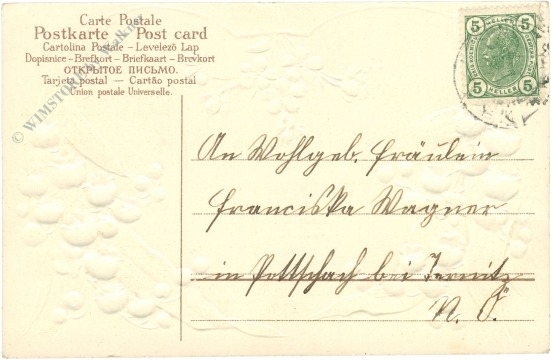 Carte Postale
Postkarte — Post card
Cartolina Postale – Levelező Lap
Dopisnice – Brefkort – Briefkaart – Brevkort
ОТКРЫТОЕ ПИСЬМО.
Tarjeta postal — Cartão postal
Union postale Universelle.
5 HELLER 5
5 HELLER 5
An Wohlgeb. Fräulein
Franciska Wagner
in Pottschach bei Ternitz
N. Ö.